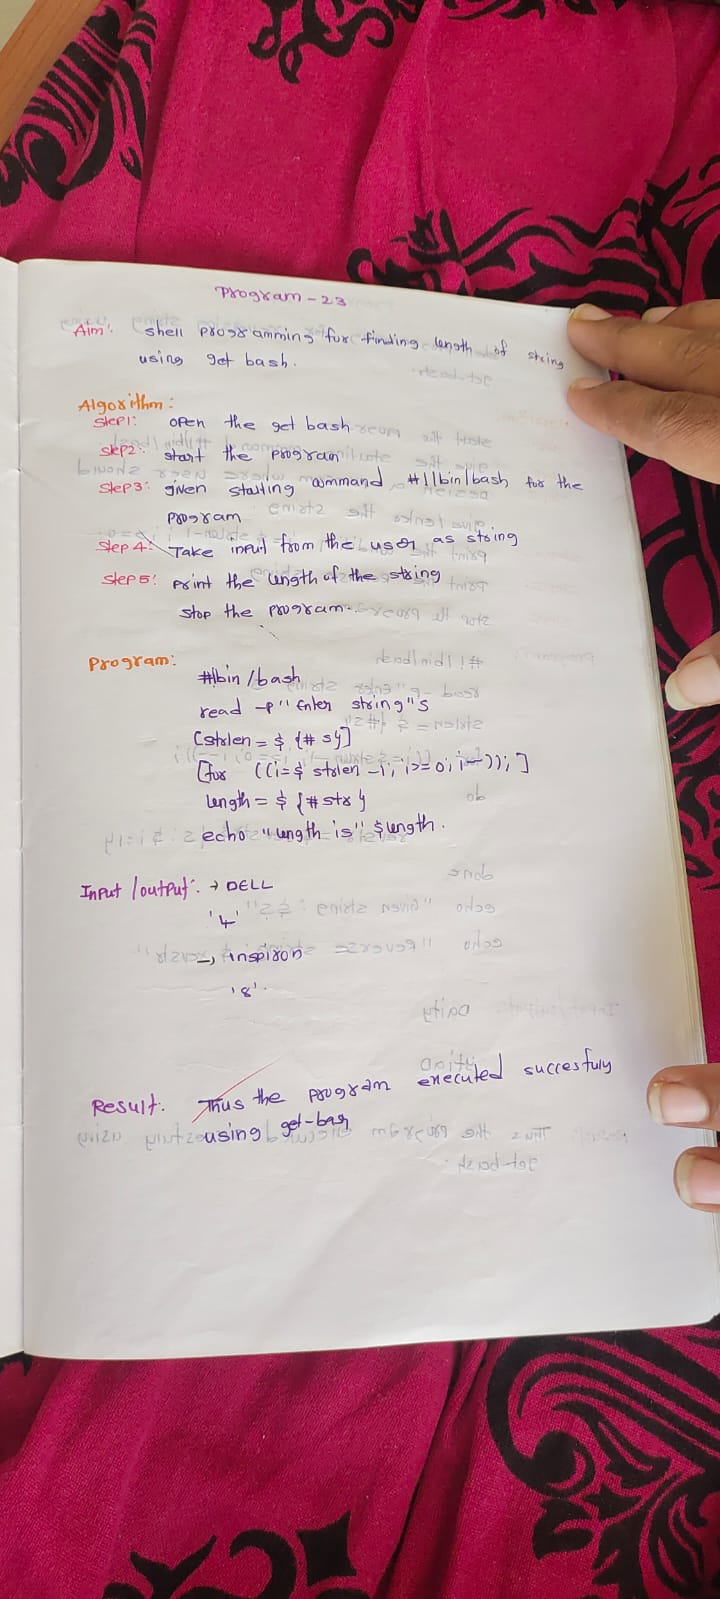 Program - 23
Aim: shell programming for finding length of string
using get bash.
Algorithm:
Step1: open the get bash
step2: start the program
step3: given starting command #!/bin/bash for the
program
step 4: Take input from the user as string
step5: print the length of the string
stop the program.
Program:
#!bin/bash
read -p "Enter string" s
[strlen = ${#s}]
[for ((i=$ strlen -1; i>=0; i--)); ]
length = ${#str}
echo "length is" $length.
Input/output: → DELL
'4'
→ inspiron
'8'.
Result: Thus the program executed succesfuly
using get-bash